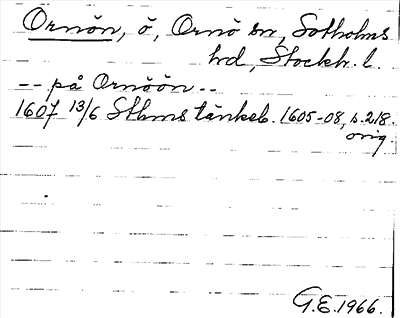 Ornön, ö, Ornö sn, Sotholms
hd, Stockh. l.
-- på Ornöön --
1607 13/6 Sthms tänkeb. 1605-08, s. 218.
orig.
G.E. 1966.